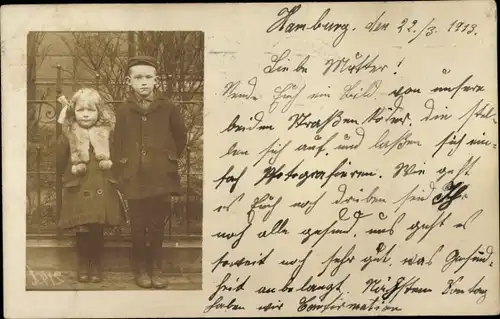 Hamburg. den 22./3. 1913.
Liebe Mutter!
Sende Euch ein Bild von unsere
beiden Straßenköter, die stel-
len sich auf und laßen sich ein-
fach Photografieren. Wie geht
es Euch noch drüben seid Ihr
noch alle gesund, uns geht es
soweit noch sehr gut, was Gesund-
heit anbelangt. Nächsten Sontag
haben wir Confirmation